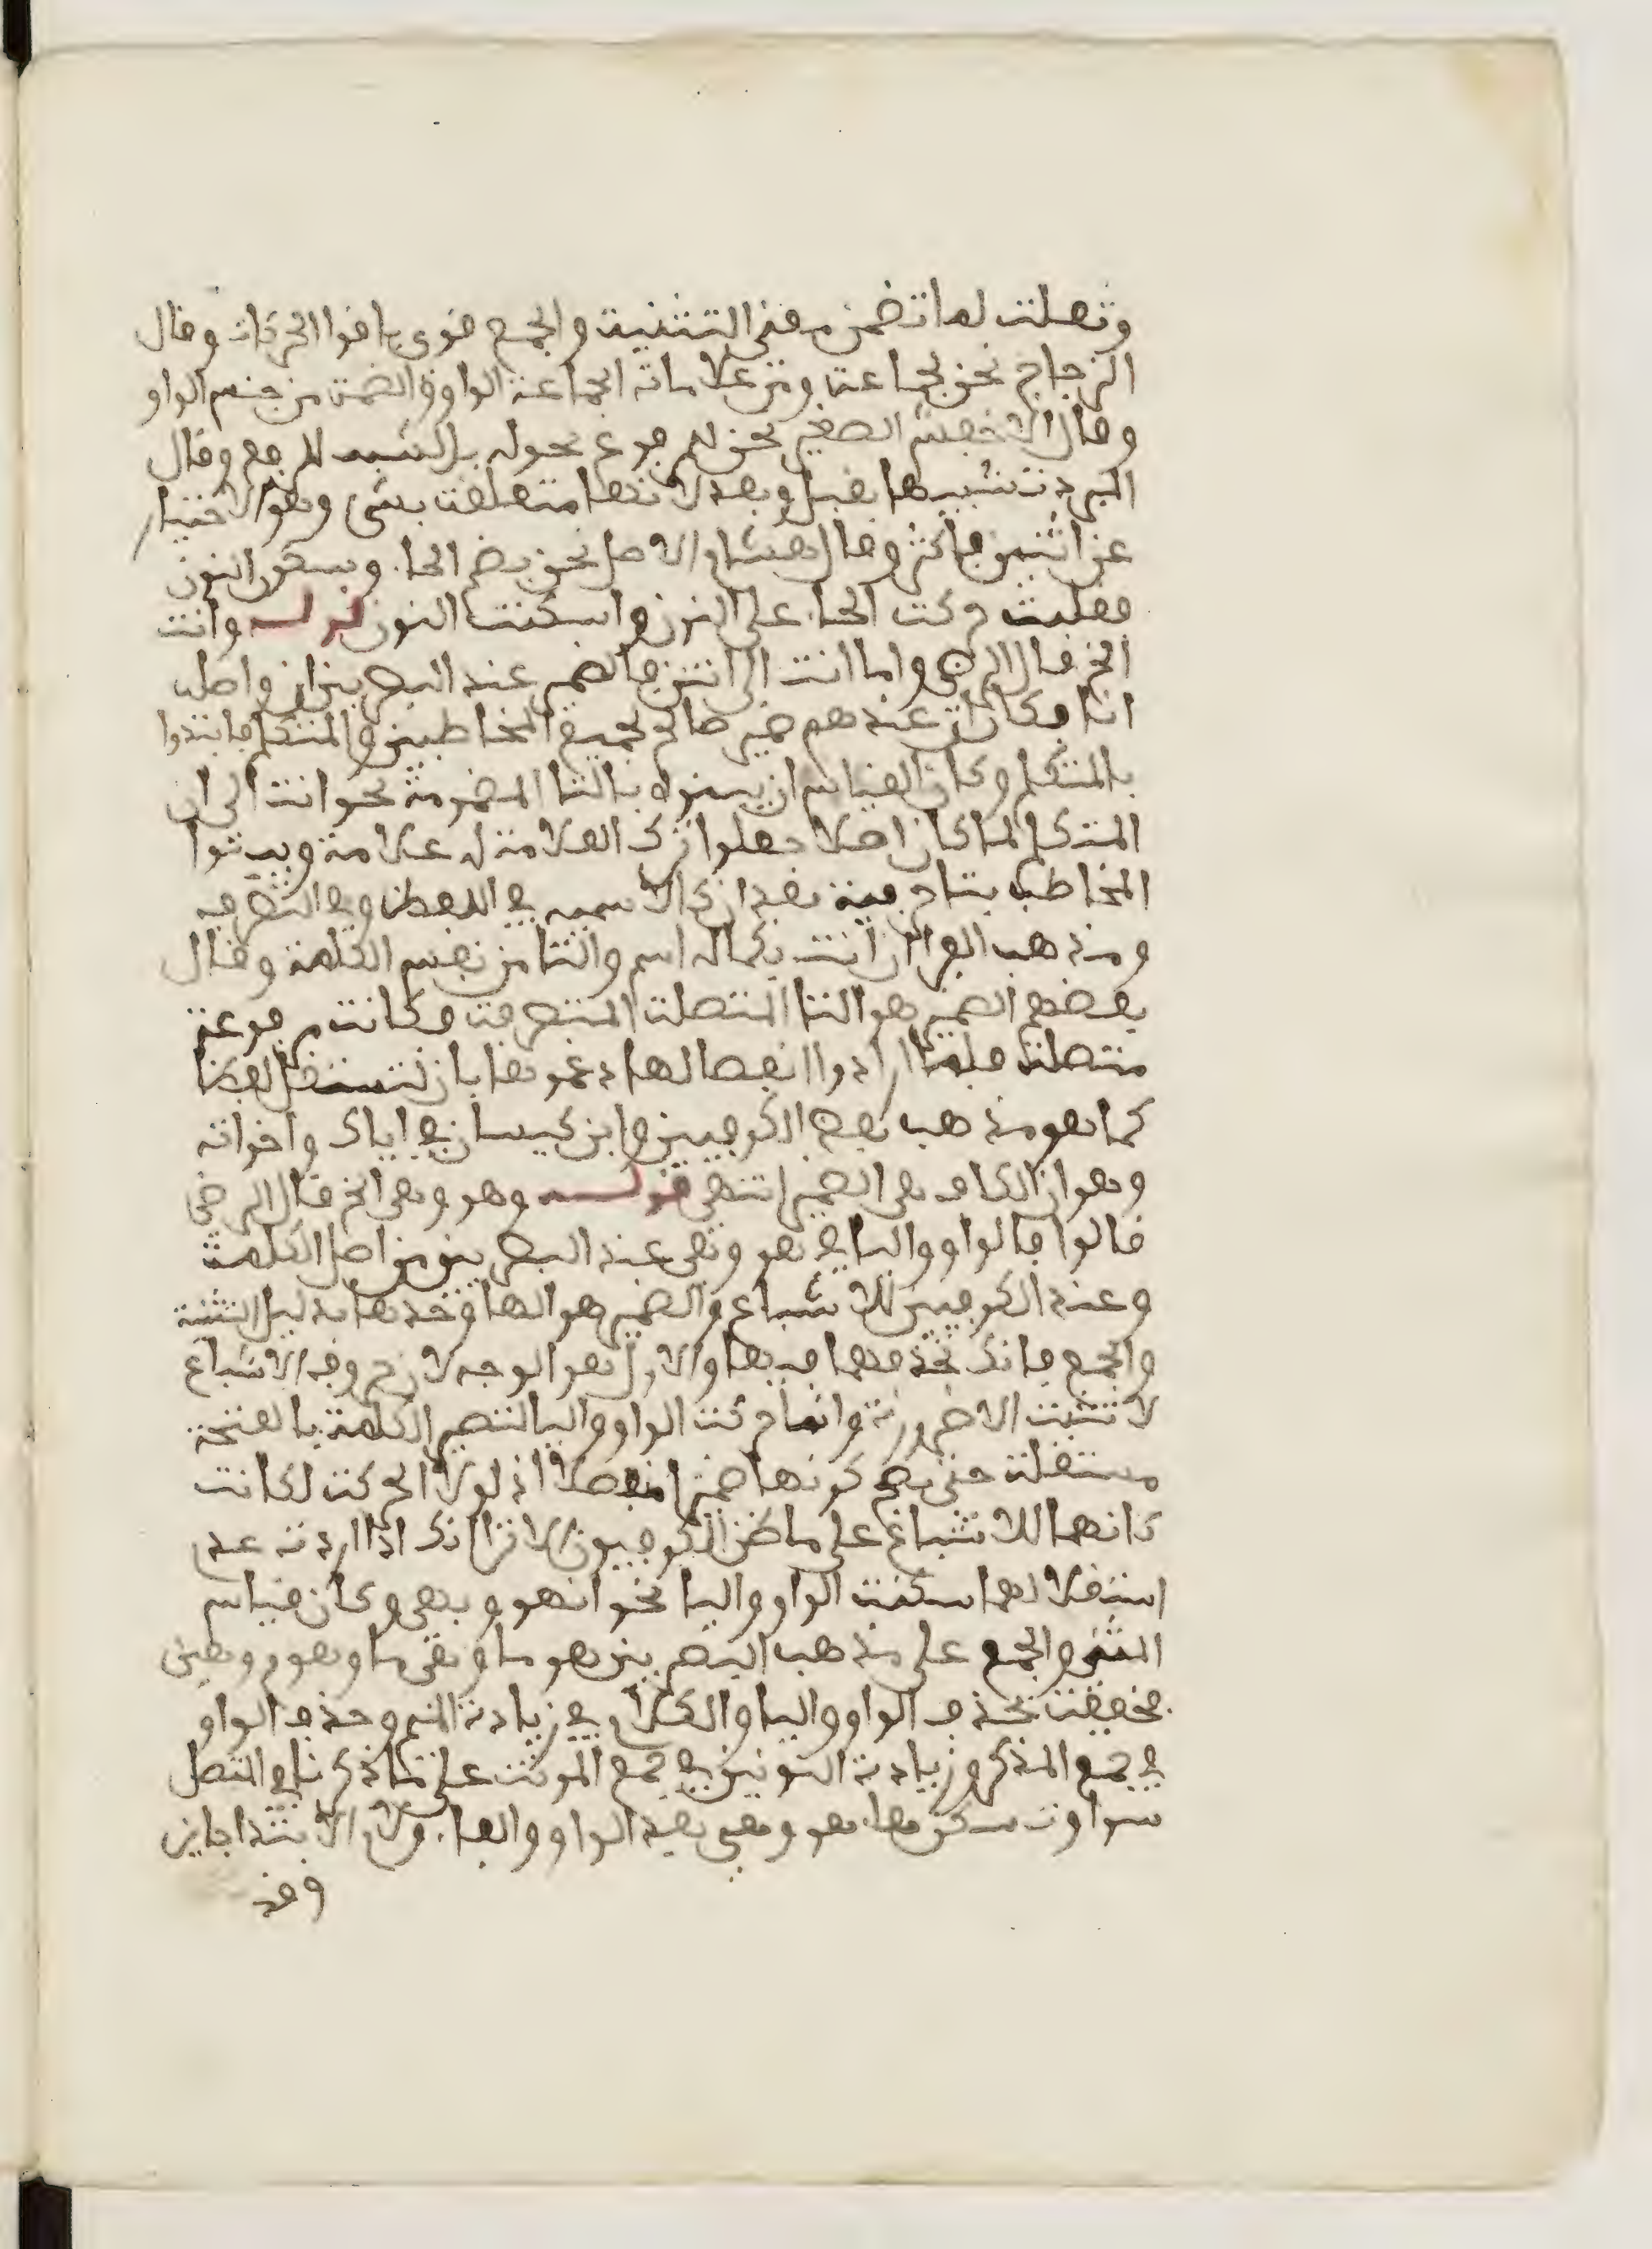 وثعلب لما تضمن معنى التثنية والجمع قوي باقوا الحركات وقال
الزجاج نحن لجماعة ومن علامات الجماعة الواو والضمة من جنس الواو
وقال الاخفش الصغير نحن للمرفوع فحرك بالشبه للرفع وقال
المبرد تشبيها بقبل وبعد لانها متعلقة بشيء وهو الاخبار
عن اثنين فاكثر وقال هشام الاصل نحن بضم الحاء وسكون النون
فقلبت حركت الحاء على النون واسكنت النون قوله وانت
الخ قال الرضى واما انت الى انتن فالضمير عند البصريين ان واصله
انا وكان ان عندهم ضمير صالح لجميع المخاطبين والمتكلم فابتدوا
بالمتكلم وكان القياس ان يبينوه بالتا المضمومة نحو انت الى ان
المتكلم لما كان اصلا جعلوا ترك العلامة له علامة وبينوا
المخاطب بتا حرفية بعد ان كالاسمية في اللفظ وفي التصرف
ومذهب الفرا ان انت بكماله اسم والتا من نفس الكلمة وقال
بعضهم الضمير هو التا المتصلة المتصرفة وكانت مرفوعة
متصلة فلما ارادوا انفصالها دعموها بان لتستقل لفظا
كما هو مذهب بعض الكوفيين وابن كيسان في اياك واخواته
وهو ان الكاف هي الضمير انتهى قوله وهو وهي الخ قال الرضى
قالوا فالواو واليا في هو وهي عند البصريين من اصل الكلمة
وعند الكوفيين للاشباع والضمير هو الها وحدها بدليل التثنية
والجمع فانك تحذفهما فيهما والاول هو الوجه لان حروف الاشباع
لا تثبت الا ضرورة وانما حركت الواو واليا لتصير الكلمة بالفتحة
مستقلة حتى يصح كونها ضميرا منفصلا اذ لولا الحركة لكانت
كانهما للاشباع على ما ظن الكوفيون الا ترا انك اذا اردت عدم
استقلالهما سكنت الواو واليا نحو انهو وبهي وكان قياس
المثنى والجمع على مذهب البصريين هوما وهيما وهوم وهين
فخففت بحذف الواو واليا والكلام في زيادة الميم وحذف الواو
في جمع المذكر وزيادة النونين في جمع المونث على ما ذكرنا في المتصل
سوا وتسكن ها هو وهي بعد الواو والفاء ولام الابتدا جايز
وقد